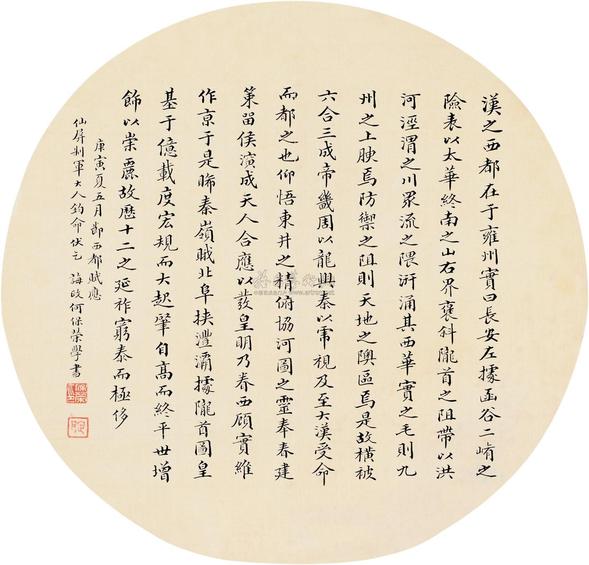 漢之西都在于雍州實曰長安左據函谷二崤之
險表以太華終南之山右界褒斜隴首之阻帶以洪
河涇渭之川眾流之隈汧涌其西華實之毛則九
州之上腴焉防禦之阻則天地之隩區焉是故橫被
六合三成帝畿周以龍興秦以虎視及至大漢受命
而都之也仰悟東井之精俯協河圖之靈奉春建
策留侯演成天人合應以發皇明乃眷西顧實維
作京于是睎秦嶺睋北阜挾灃灞據隴首圖皇
基于億載度宏規而大起肇自高而終平世增
飾以崇麗故歷十二之延祚窮泰而極侈
庚寅夏五月節西都賦應
仙屏制軍大人鈞命伏乞
誨政何保榮學書